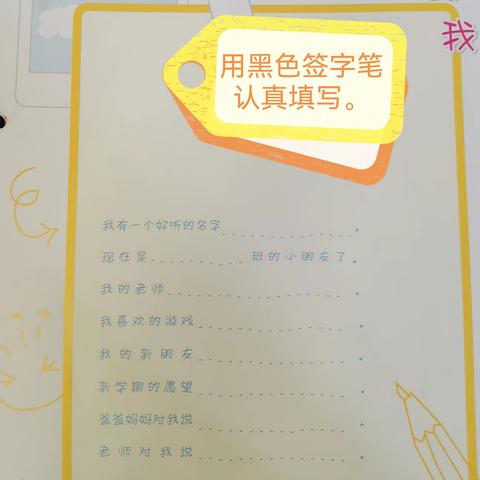 我
用黑色签字笔
认真填写。
我有一个好听的名字__________。
现在是__________班的小朋友了。
我的老师__________。
我喜欢的游戏__________。
我的新朋友__________。
新学期的愿望__________。
爸爸妈妈对我说__________。
老师对我说__________。